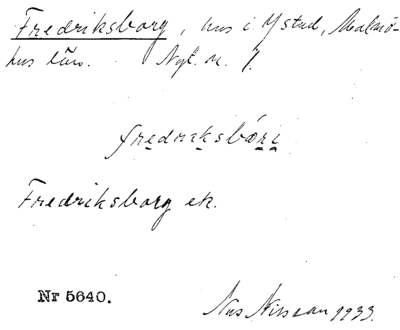 Fredriksborg, hus i Ystad, Malmö-
hus län. Nyt. n. 7.
fredriksbári
Fredriksborg ek.
Nr 5640.
Nils Nilsson 1933.